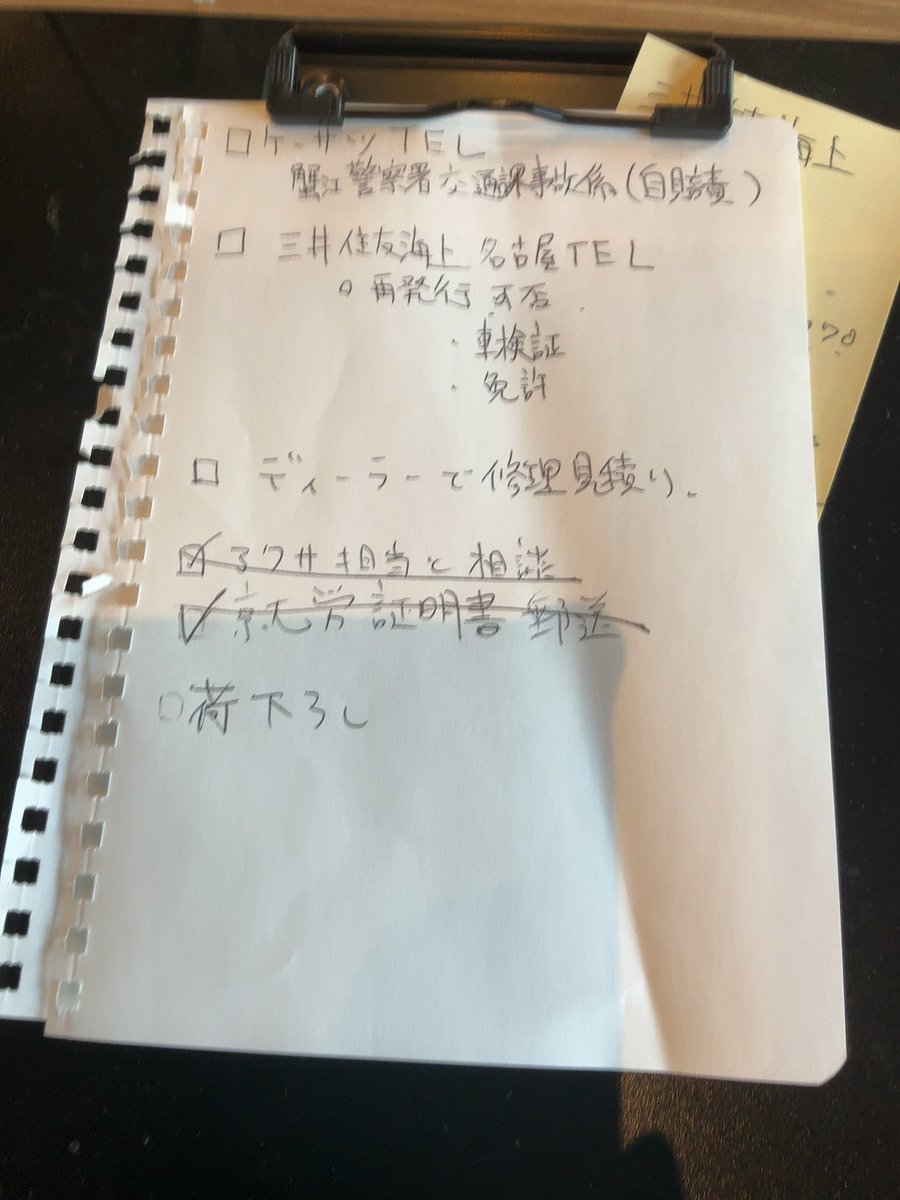 □ ケーサツ TEL
蟹江警察署交通課事故係(自賠責)
□ 三井住友海上 名古屋TEL
○ 再発行 可否
・車検証
・免許
□ ディーラーで修理見積り.
☑ アクサ担当と相談
☑ 就労証明書 郵送
□荷下ろし
海上
70